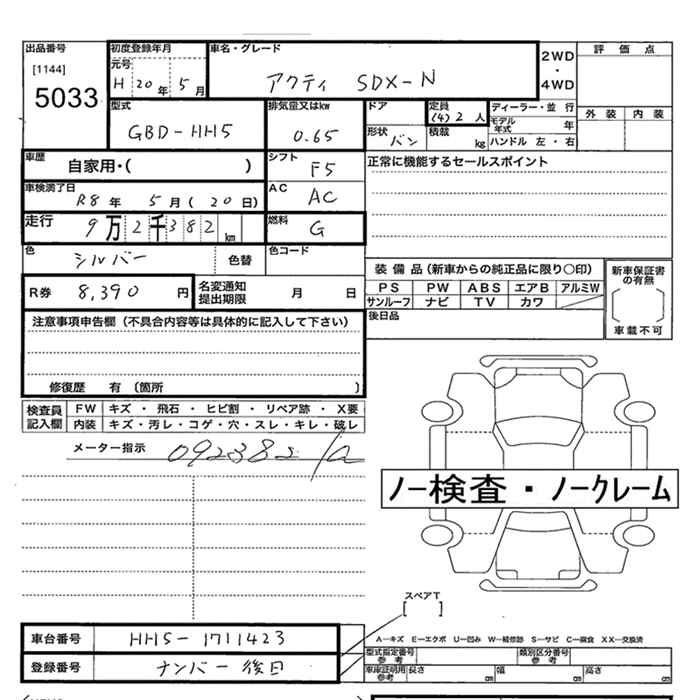 出品番号
[1144]
5033
初度登録年月
元号
H 20年 5月
車名・グレード
アクティ SDX-N
2WD
・
4WD
評価点
外装 内装
型式
GBD-HH5
排気量又はkw
0.65
ドア
形状 バン
定員
(4) 2 人
積載 kg
ディーラー・並行
モデル年式 年
ハンドル 左・右
車歴
自家用・( )
シフト
F5
正常に機能するセールスポイント
車検満了日
R8年 5月(20日)
AC
AC
走行
9万2千382km
燃料
G
色
シルバー
色替
色コード
R券 8,390円
名変通知提出期限 月 日
装備品(新車からの純正品に限り○印)
PS PW ABS エアB アルミW
サンルーフ ナビ TV カワ
新車保証書の有無
[ ]
車載不可
後日品
注意事項申告欄(不具合内容等は具体的に記入して下さい)
修復歴 有 〔箇所 〕
検査員記入欄
FW キズ・飛石・ヒビ割・リペア跡・X要
内装 キズ・汚レ・コゲ・穴・スレ・キレ・破レ
メーター指示 092382
ノー検査・ノークレーム
スペアT
[ ]
A―キズ E―エクボ U―凹み W―補修跡 S―サビ C―腐食 XX―交換済
車台番号 HH5-1711423
登録番号 ナンバー後日
型式指定番号 参考
類別区分番号 参考
車庫証明用 参考
長さ cm 幅 cm 高さ cm